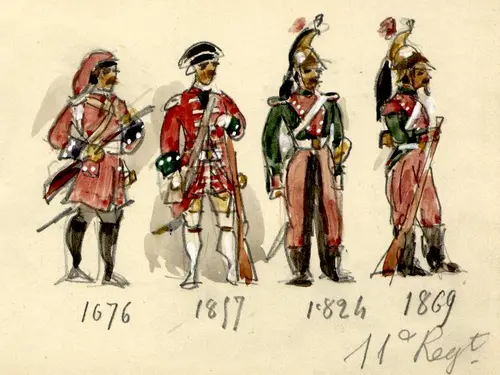 1676 1857 1824 1869
11ᵈ Regᵗ